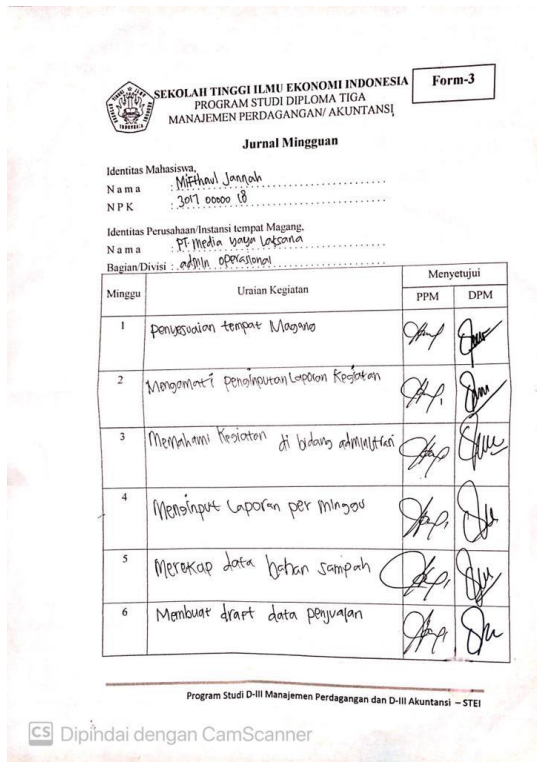 SEKOLAH TINGGI ILMU EKONOMI INDONESIA
PROGRAM STUDI DIPLOMA TIGA
MANAJEMEN PERDAGANGAN/ AKUNTANSI
Form-3
Jurnal Mingguan
Identitas Mahasiswa,
Nama : Mifthaul Jannah
NPK : 3017 00000 18
Identitas Perusahaan/Instansi tempat Magang,
Nama : PT. media yaya Laksana
Bagian/Divisi : admin operasional
Minggu Uraian Kegiatan Menyetujui
PPM DPM
1 Penyesuaian tempat Magang
2 Mengamati penginputan Laporan Kegiatan
3 Memahami Kegiatan di bidang administrasi
4 Menginput Laporan per minggu
5 Merekap data bahan sampah
6 Membuat draft data penjualan
Program Studi D-III Manajemen Perdagangan dan D-III Akuntansi – STEI
CS Dipindai dengan CamScanner